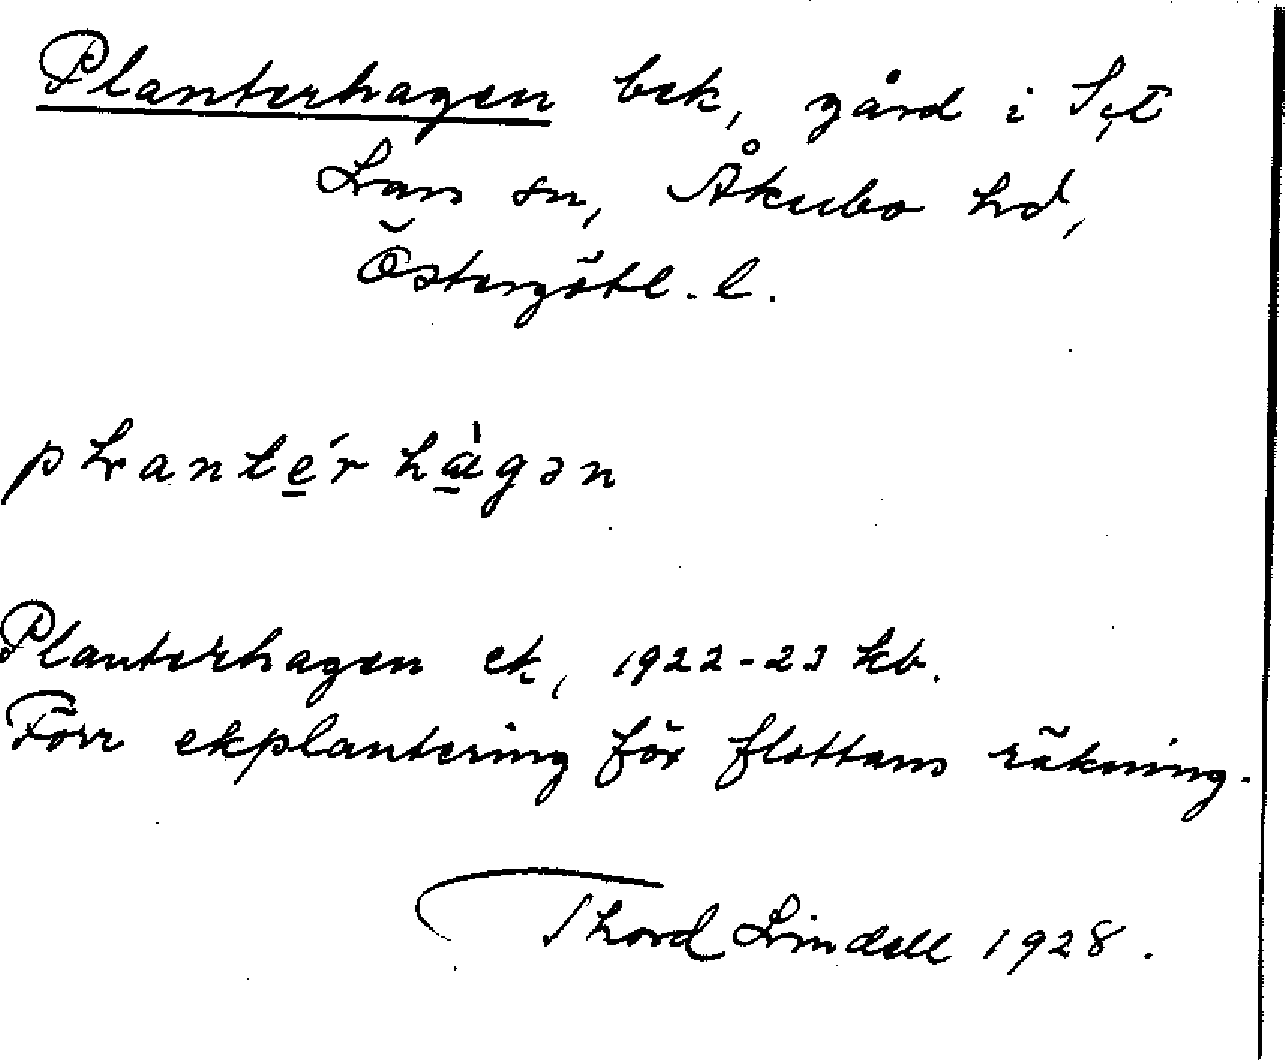 Planterhagen bek, gård i S:t
Lars sn, Åkerbo hd,
Östergötl. l.
plantérhàgən
Planterhagen ek, 1922-23 kb.
Förr ekplantering för flottans räkning.
Thord Lindell 1928.